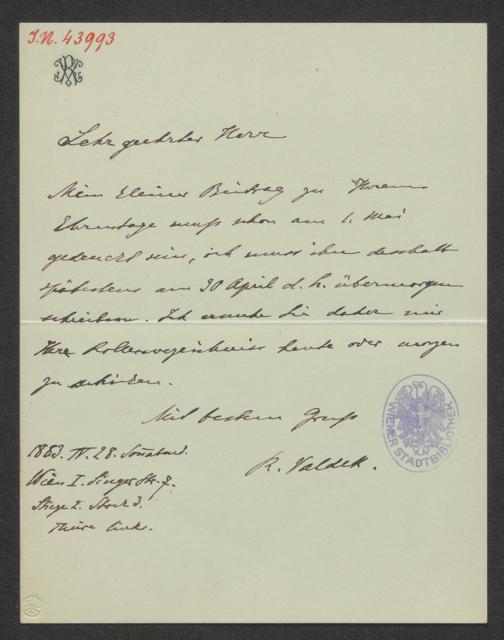 I.N. 43993
Sehr geehrter Herr
Mein kleiner Beitrag zu Ihrem
Ehrentage muß schon am 1. Mai
gedruckt sein, ich muss ihn deshalb
spätestens am 30 April d. h. übermorgen
schreiben. Ich ersuche Sie daher mir
Ihr heute oder morgen
zu schicken.
Mit bestem Gruß
R. Valdek.
1883. IV. 28. Sonabend.
Wien I. Singer Str. 7.
Stiege I. Stock 3.
Thüre links.
WIENER STADTBIBLIOTHEK